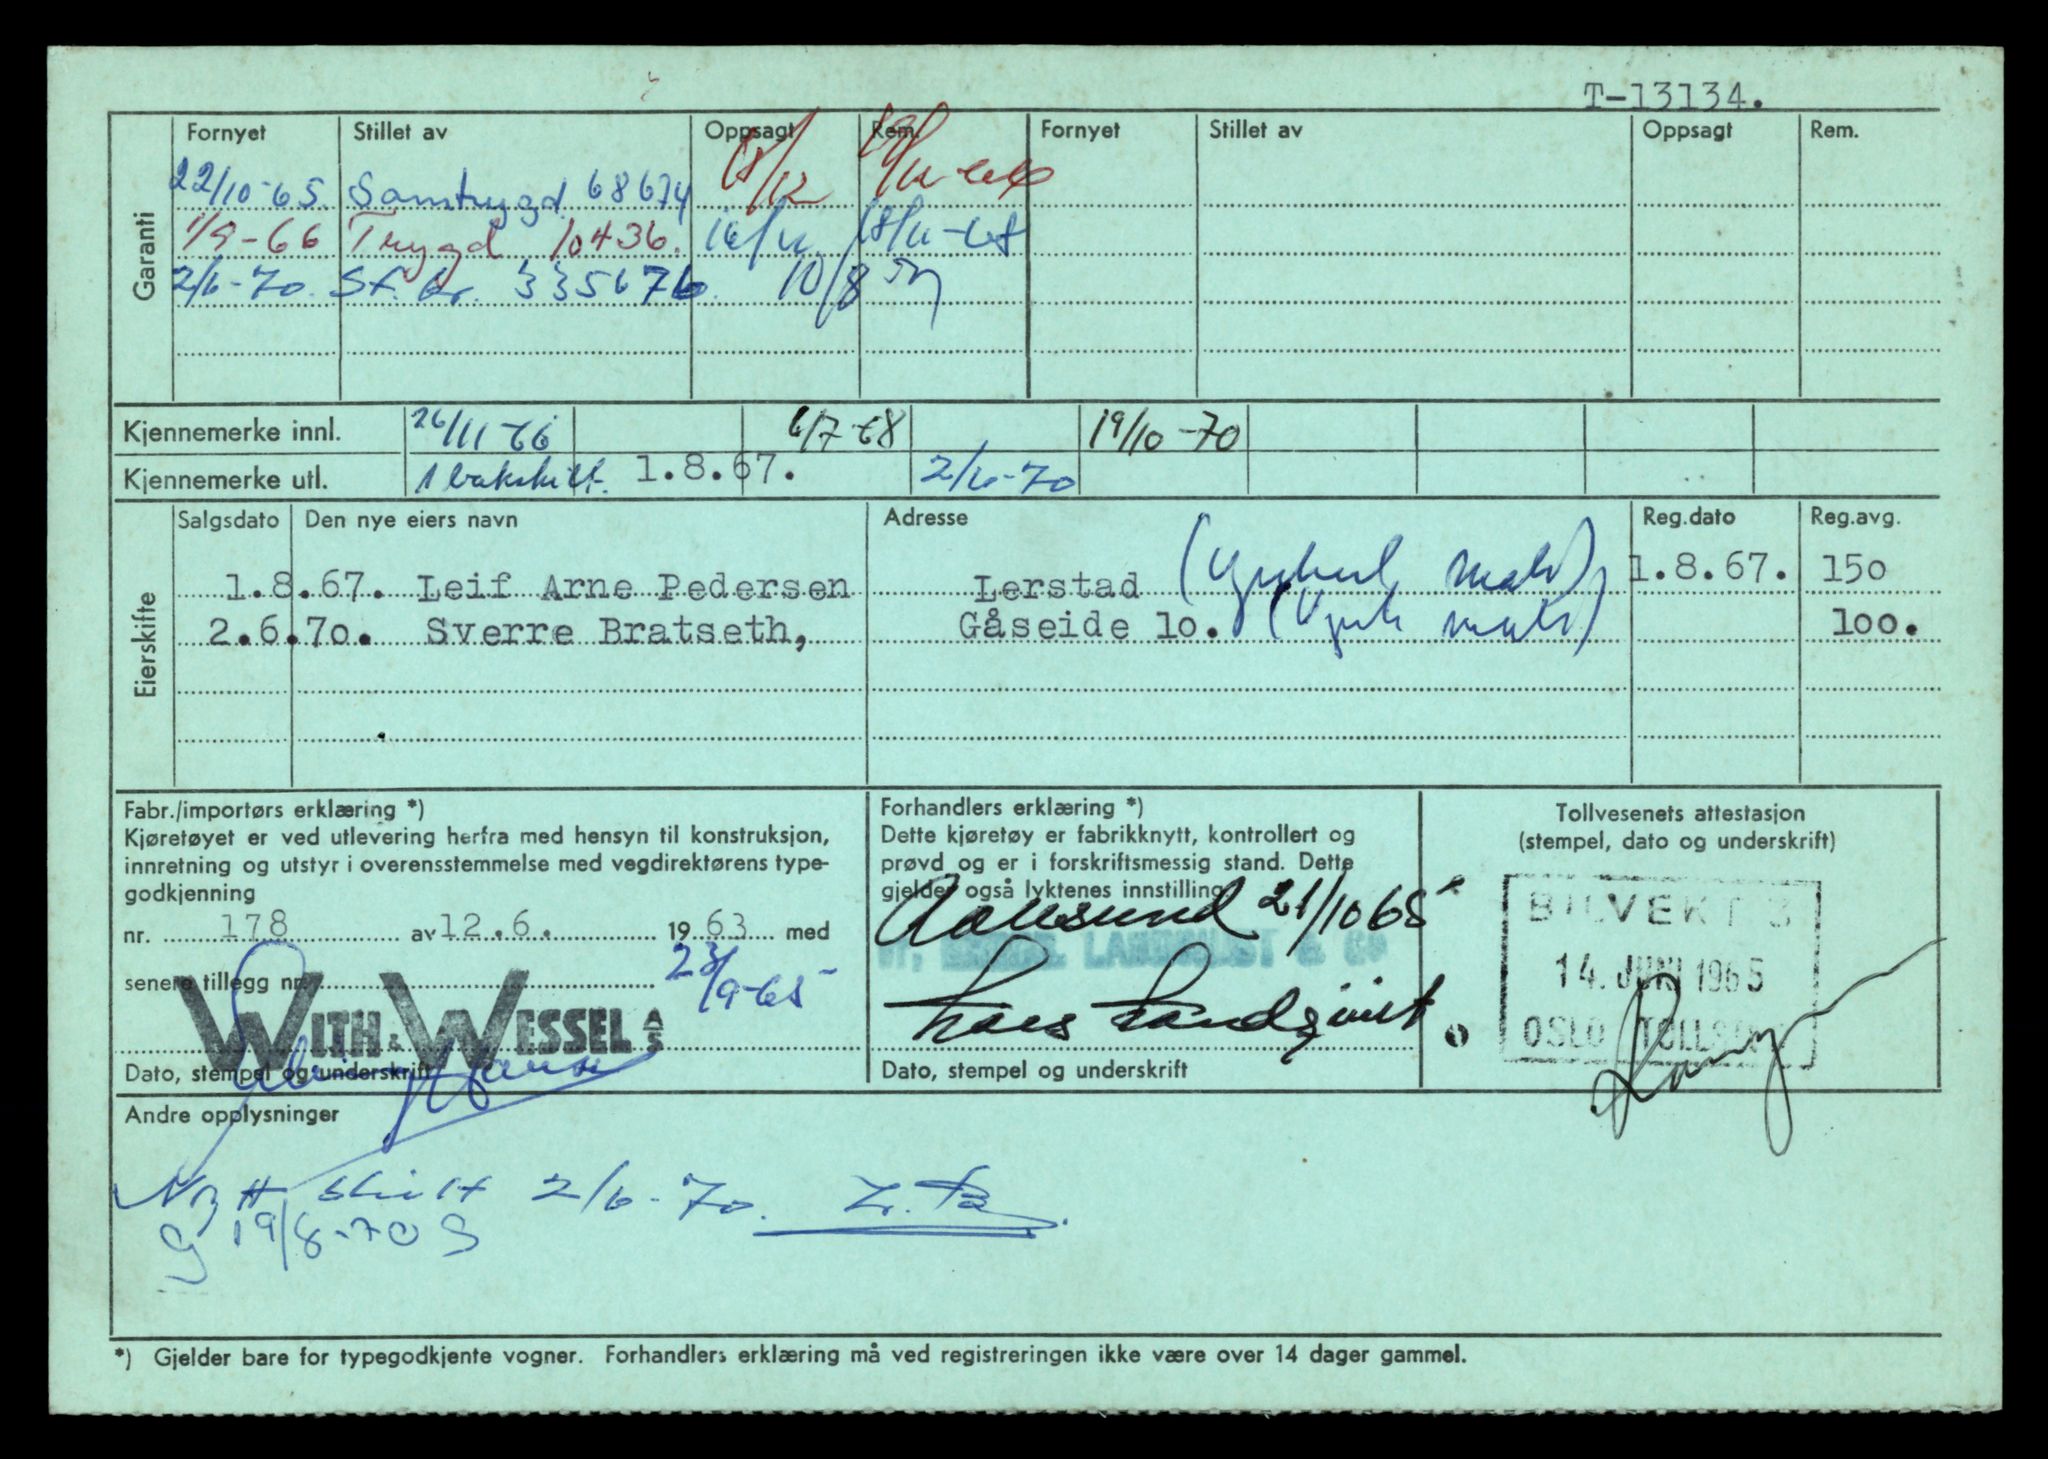 T-13134.
Garanti
Fornyet Stillet av Oppsagt Rem. Fornyet Stillet av Oppsagt Rem.
22/10-65. Samtrygd 68674
1/9-66 Trygd 10436. 18/11-68
2/6-70. St. br. 335676. 10/8
Kjennemerke innl. 26/11-66 6/7-68 19/10-70
Kjennemerke utl. 1 bakskilt. 1.8.67. 2/6-70
Eierskifte
Salgsdato Den nye eiers navn Adresse Reg.dato Reg.avg.
1.8.67. Leif Arne Pedersen Lerstad 1.8.67. 150
2.6.70. Sverre Bratseth, Gåseide 10. 100.
Fabr./importørs erklæring *)
Kjøretøyet er ved utlevering herfra med hensyn til konstruksjon,
innretning og utstyr i overensstemmelse med vegdirektørens type-
godkjenning
nr. 178 av 12.6. 1963 med
senere tillegg nr. 23/9-65
WITH & WESSEL A/S
Dato, stempel og underskrift
Forhandlers erklæring *)
Dette kjøretøy er fabrikknytt, kontrollert og
prøvd og er i forskriftsmessig stand. Dette
gjelder også lyktenes innstilling.
Aalesund 21/10 65
LANDQUIST & CO
Lars Landqvist
Dato, stempel og underskrift
Tollvesenets attestasjon
(stempel, dato og underskrift)
BILVEKT 3
14. JUNI 1965
OSLO TOLLSTED
Andre opplysninger
Nytt skilt 2/6-70.
G 19/8-70 S
*) Gjelder bare for typegodkjente vogner. Forhandlers erklæring må ved registreringen ikke være over 14 dager gammel.